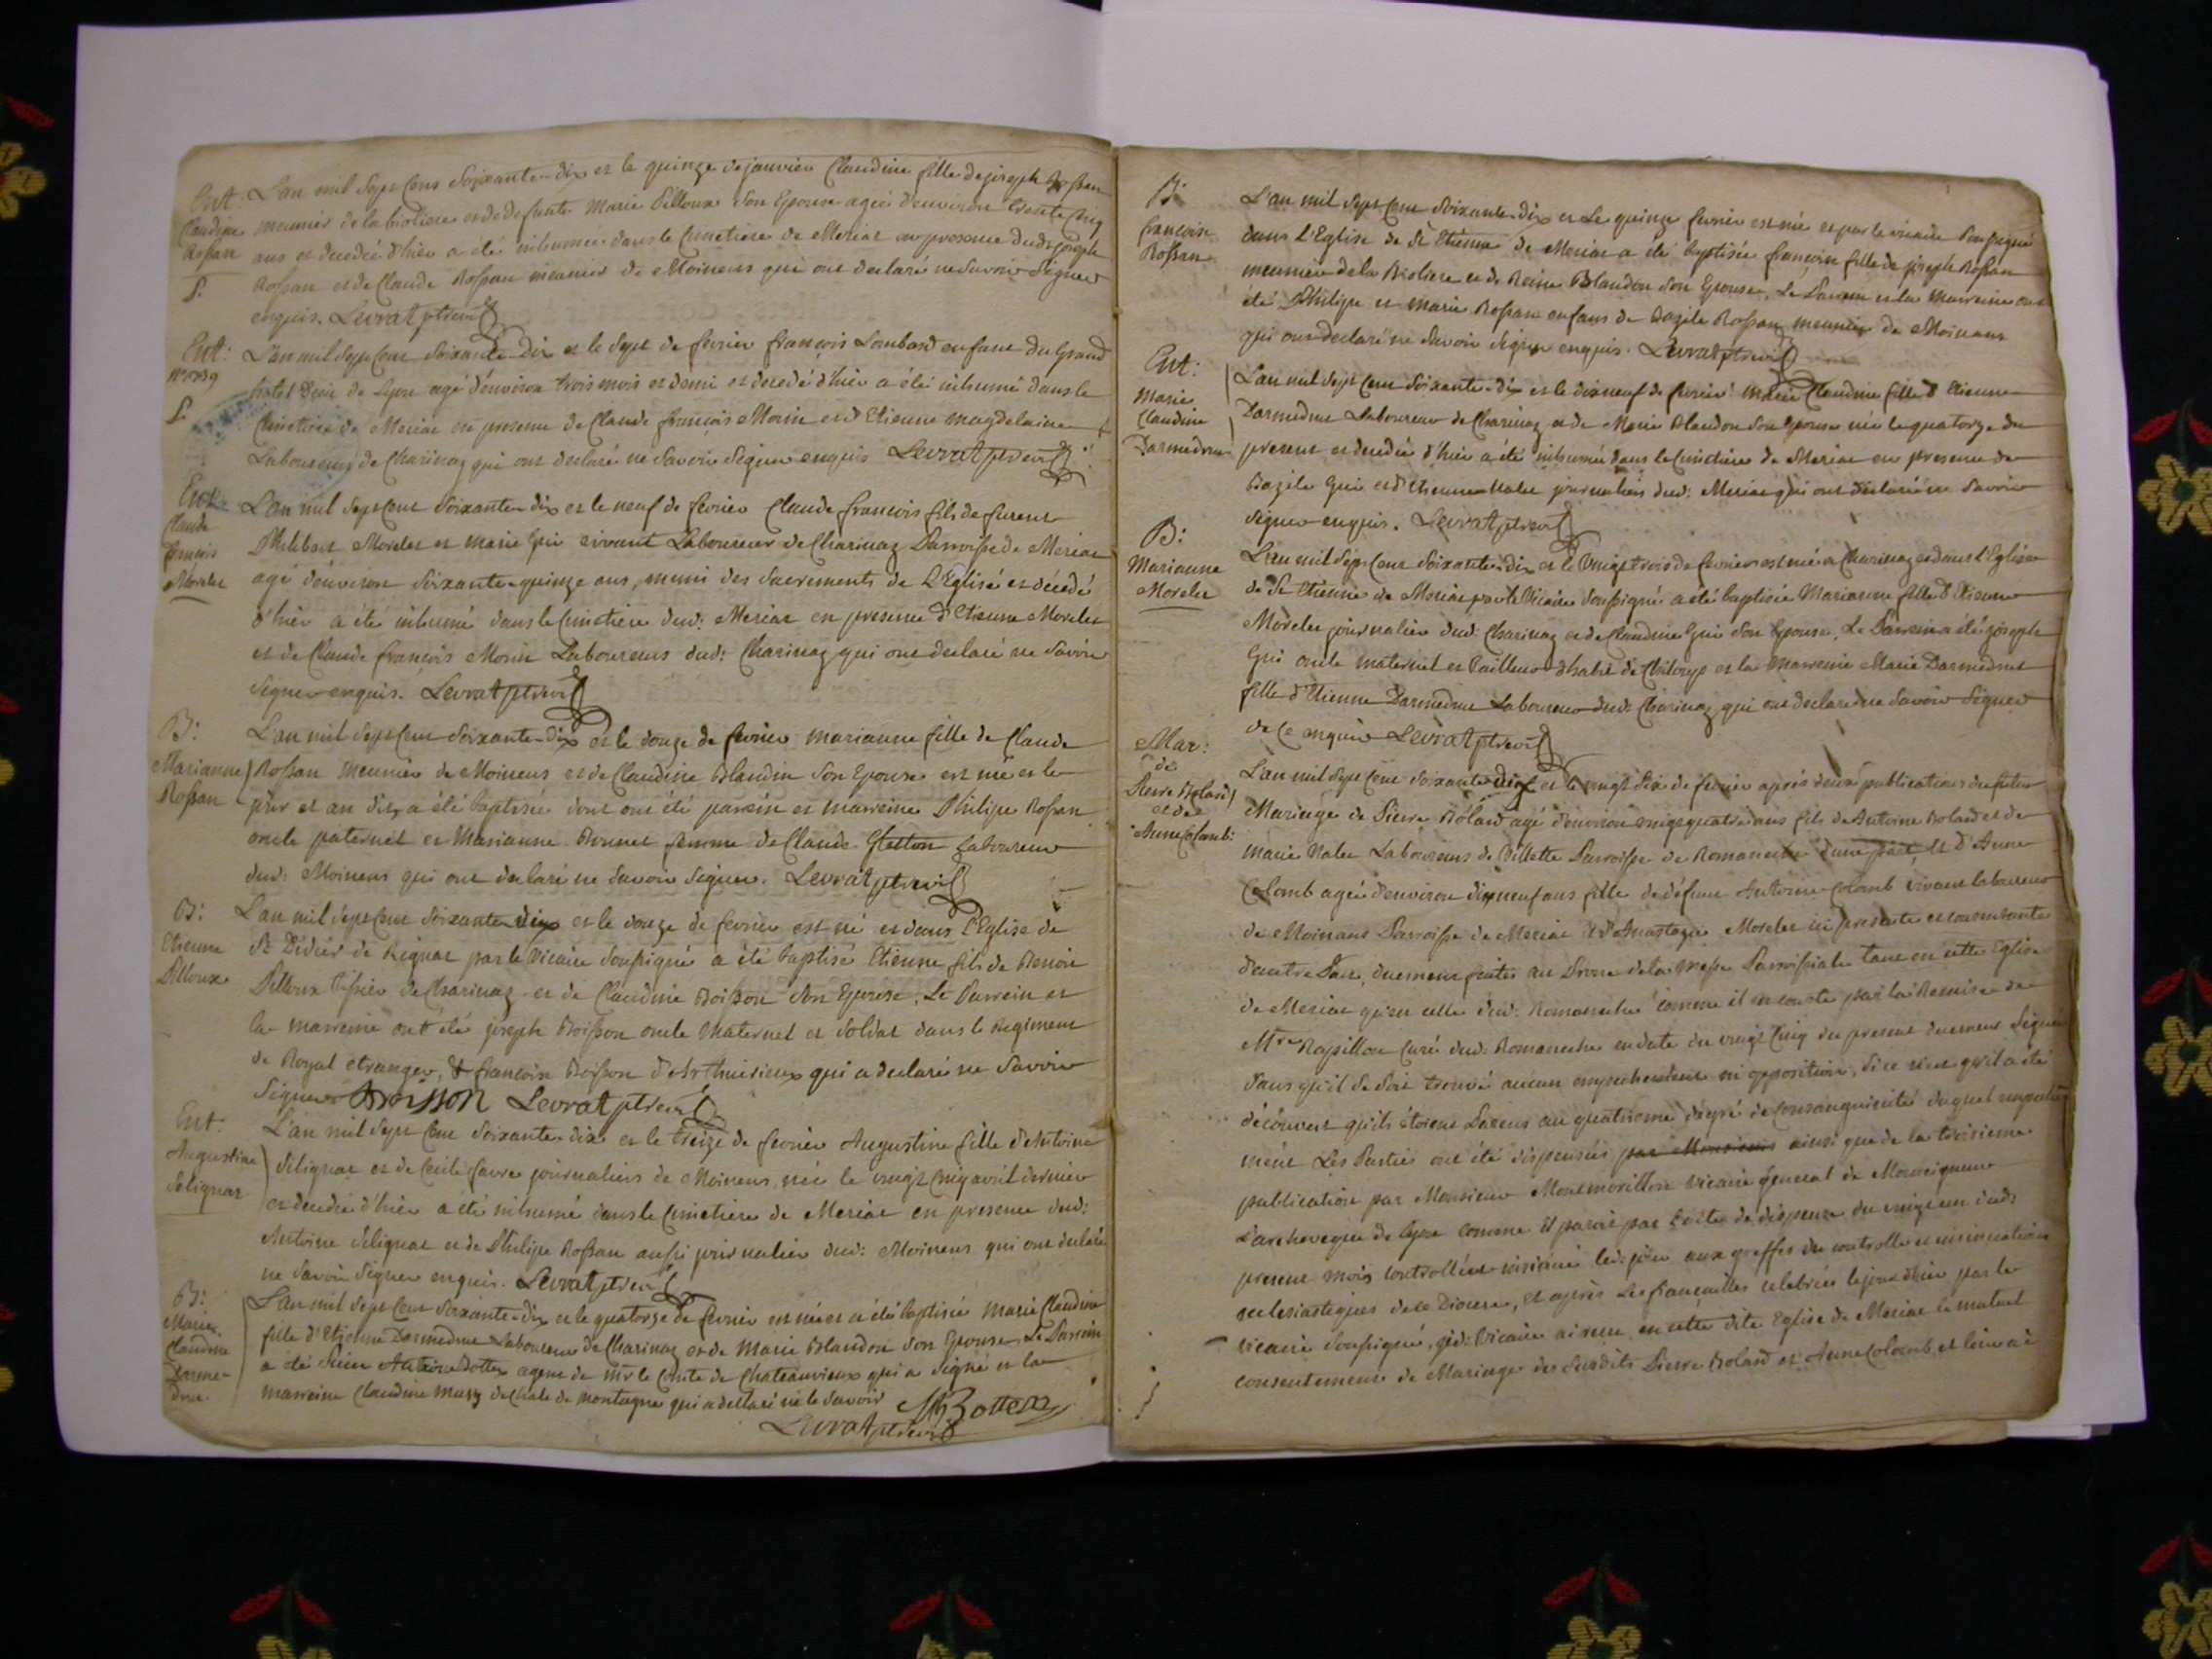 Ent: L'an mil sept cens soixante-dix et le quinze de janvier Claudine fille de joseph Rossan
Claudine meunier de la bioliere et de defunte Marie Pilloux son Epouse agée d'environ trente cinq
Rossan ans et decedée d'hier a été inhumée dans le Cimetiere de Meriat en presence dudt joseph
P. Rossan et de Claude Rossan meunier de Moinens qui ont declaré ne savoir signer
enquis. Levrat ptre vic
Ent: L'an mil sept cent soixante-dix et le sept de fevrier françois Lombard enfant du Grand
hotel Dieu de Lyon agé d'environ trois mois et demi et decedé d'hier a été inhumé dans le
P. Cimetiere de Meriat en presence de Claude françois Morin et d'Etienne Magdelaine
Laboureurs de Charinaz qui ont declaré ne savoir signer enquis Levrat ptre vic
Ent: L'an mil sept cent soixante-dix et le neuf de fevrier Claude françois fils de furent
Claude
françois Philibert Morelet et Marie Gui vivant Laboureur de Charinaz Parroisse de Meriat
Morelet agé d'environ soixante-quinze ans, muni des sacrements de L'Eglise et décedé
d'hier a été inhumé dans le Cimetiere dud: Meriat en presence d'Etienne Morelet
et de Claude françois Morin Laboureurs dud: Charinaz qui ont declaré ne savoir
signer enquis. Levrat ptre vic
B: L'an mil sept cent soixante-dix et le douze de fevrier marianne fille de Claude
Marianne Rossan meunier de Moinens et de Claudine Blandin son Epouse est née et le
Rossan jour et an dit, a été baptisée dont ont été parrein et marreine Philipe Rossan
oncle paternel et Marianne Brunet femme de Claude laboureur
dud: Moinens qui ont declaré ne savoir signer. Levrat ptre vic
B: L'an mil sept cent soixante dix et le douze de fevrier est né et dans l'Eglise de
Etienne St Didier de Rignat par le Vicaire soussigné a été baptisé Etienne fils de Benoit
Pilloux Pilloux Tissier de Charinaz et de Claudine Boisson son Epouse; Le Parrein et
la marreine ont été joseph Boisson oncle maternel et soldat dans le Regiment
de Royal etranger, & françoise Boisson d'Arthuisieux qui a declaré ne savoir
signer Boisson Levrat ptre vic
Ent: L'an mil sept cent soixante-dix et le treize de fevrier Augustine fille d'Antoine
Augustine Silignat et de Cecile favre journaliers de Moinens, née le vingt cinq avril dernier
Selignat et decedée d'hier a été inhumée dans le Cimetiere de Meriat en presence dud:
Antoine silignat et de Philipe Rossan aussi journalier dud: Moinens qui ont declaré
ne savoir signer enquis. Levrat ptre vic
B: L'an mil sept cent soixante-dix et le quatorze de fevrier est née et a été baptisée Marie Claudine
Marie
Claudine fille d'Etienne Darmedrue Laboureur de Charinaz et de Marie Blandon son Epouse. Le Parrein
Darme- a été Antoine Bottex agent de Mr le Comte de Chateauvieux qui a signé et la
drue. marreine Claudine de Chale de montagne qui a declaré ne le savoir Bottex
Levrat ptre vic
B: L'an mil sept cent soixante-dix et Le quinze fevrier est née et par le vicaire soussigné
françoise dans L'Eglise de St Etienne de Meriat a été baptisée françoise fille de joseph Rossan
Rossan meunier de la Bioliere et de Reine Blandon son Epouse. Le Parrein et la Marreine ont
été Philipe et Marie Rossan enfans de Bazile Rossan meunier de Moinans
qui ont declaré ne savoir signer enquis. Levrat ptre vic
Ent: L'an mil sept cent soixante-dix et le dixneuf de fevrier Marie Claudine fille d'Etienne
Marie
Claudine Darmedrue Laboureur de Charinaz et de Marie Blandon son Epouse née le quatorze du
Darmedrue present et decedée d'hier a été inhumée dans le Cimetiere de Meriat en presence de
Bazile Gui et d'Etienne journaliers dud: Meriat qui ont declaré ne savoir
signer enquis. Levrat ptre vic
B: L'an mil sept cent soixante-dix et le vingt trois de fevrier est née a Charinaz et dans l'Eglise
Marianne de St Etienne de Meriat par le Vicaire soussigné a été baptisée Marianne fille d'Etienne
Morelet Morelet journalier dud: Charinaz et de Claudine Gui son Epouse. Le Parrein a été joseph
Gui oncle maternel et Tailleur d'habit de et la marreine Marie Darmedrue
fille d'Etienne Darmedrue Laboureur dud: Charinaz qui ont declaré ne savoir signer
de ce enquis Levrat ptre vic
Mar: L'an mil sept cent soixante dix et le vingt six de fevrier après deux publications du futur
de
Pierre Bolard Mariage de Pierre Bolard agé d'environ vingt quatre ans fils de Antoine Bolard et de
et de
Anne Colomb: Marie Laboureurs de Billette Parroisse de Romaneche d'une part, Et d'Anne
Colomb agée d'environ dixneuf ans fille de défunt Antoine Colomb vivant laboureur
de Moinans Parroisse de Meriat & d'Anastazie Morelet ici presente et consentante
d'autre Part, duement faites au Prone de la Messe Parroissiale tant en cette Eglise
de Meriat qu'en celle dud: Romaneche comme il m'conste par la Remise de
Mtre Curé dud: Romaneche en date du vingt cinq du present duement signée
sans qu'il se soit trouvé aucun empechement ni opposition, si ce n'est qu'il a été
découvert qu'ils étoient Parens au quatrieme degré de consanguinité duquel empeche-
ment Les Parties ont été dispensées par Monsieur ainsi que de la troisieme
publication par Monsieur Montmorillon vicaire general de Monseigneur
L'archeveque de Lyon comme il paroit par acte de dispense du vingt un dud:
present mois controllée et insinuée led: jour aux greffes du controlle et insinuations
eclesiastiques de ce Diocese, Et après Les fiançailles celebrées le jour d'hier par le
vicaire soussigné, led: Vicaire ai recu en cette dite Eglise de Meriat le mutuel
consentement de Mariage des susdits Pierre Bolard et Anne Colomb, et leur ai